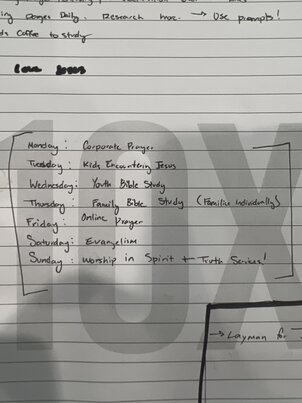 Daily. Research more. → Use prompts!
Coffee to study
Monday: Corporate Prayer
Tuesday: Kids Encountering Jesus
Wednesday: Youth Bible Study
Thursday: Family Bible Study (Families Individually)
Friday: Online Prayer
Saturday: Evangelism
Sunday: Worship in Spirit + Truth Services!
10X
→ Layman for